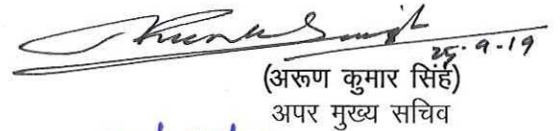 25-9-19
(अरूण कुमार सिंह)
अपर मुख्य सचिव